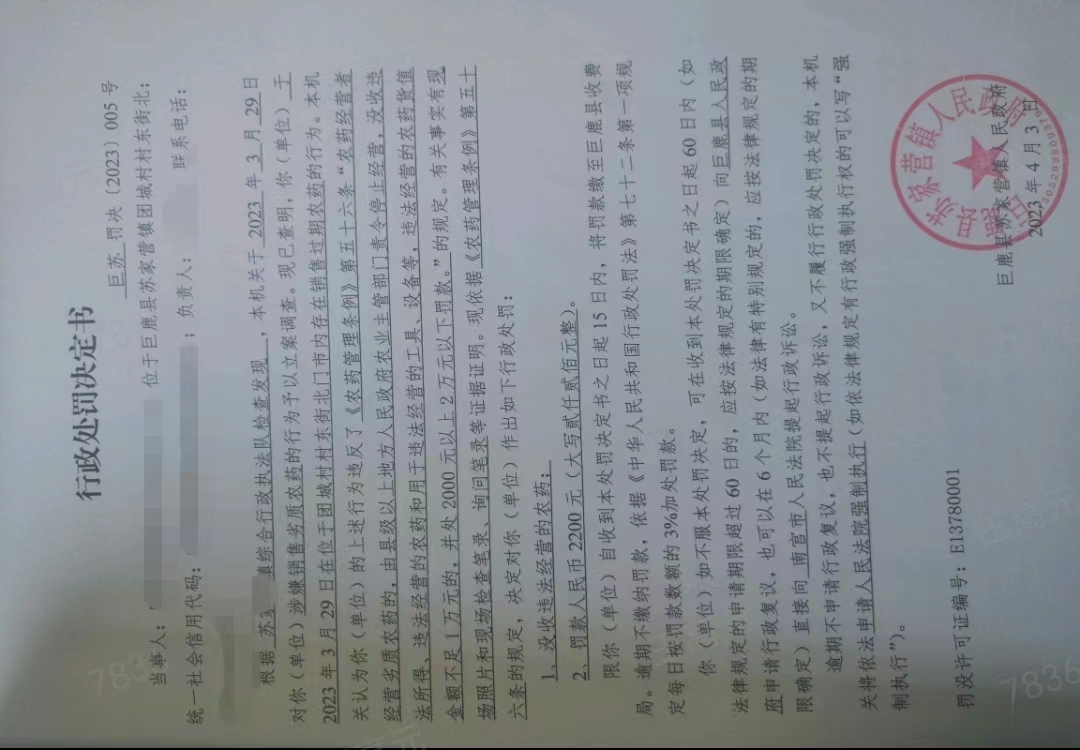 行政处罚决定书
巨苏 罚决〔2023〕005 号
当事人： 位于巨鹿县苏家营镇团城村村东街北；
统一社会信用代码： ；负责人： 联系电话：
根据 苏 镇综合行政执法队检查发现 ，本机关于 2023 年 3 月 29 日
对你（单位）涉嫌销售劣质农药的行为予以立案调查。现已查明，你（单位）于
2023 年 3 月 29 日在位于团城村村东街北门市内存在销售过期农药的行为。本机
关认为你（单位）的上述行为违反了《农药管理条例》第五十六条“农药经营者
经营劣质农药的，由县级以上地方人民政府农业主管部门责令停止经营，没收违
法所得、违法经营的农药和用于违法经营的工具、设备等，违法经营的农药货值
金额不足 1 万元的，并处 2000 元以上 2 万元以下罚款。”的规定。有关事实有现
场照片和现场检查笔录、询问笔录等证据证明。现依据《农药管理条例》第五十
六条的规定，决定对你（单位）作出如下行政处罚：
1、没收违法经营的农药；
2、罚款人民币 2200 元（大写贰仟贰佰元整）。
限你（单位）自收到本处罚决定书之日起 15 日内，将罚款缴至巨鹿县收费
局。逾期不缴纳罚款，依据《中华人民共和国行政处罚法》第七十二条第一项规
定每日按罚款数额的 3%加处罚款。
你（单位）如不服本处罚决定，可在收到本处罚决定书之日起 60 日内（如
法律规定的申请期限超过 60 日的，应按法律规定的期限确定）向巨鹿县人民政
府申请行政复议，也可以在 6 个月内（如法律有特别规定的，应按法律规定的期
限确定）直接向 南宫市人民法院提起行政诉讼。
逾期不申请行政复议，也不提起行政诉讼，又不履行行政处罚决定的，本机
关将依法申请人民法院强制执行（如依法律规定有行政强制执行权的可以写“强
制执行”）。
巨鹿县苏家营镇人民政府
2023 年 4 月 3 日
罚没许可证编号：E13780001